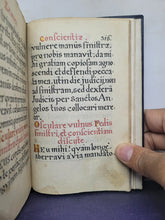 Conscientiæ 216.
vulnere manus sinistræ
pro nobis manavit, da mi
hi gratiam copiosam agno
scendi, et deflendi pecca
mea, ut in die judicii non
ad sinistram, sed ad dexte
ram Judicis per Sanctos An
gelos tuos collocari mere
ar.
Osculare vulnus Pedis
sinistri, et conscientiam
discute.
Heu mihi! quam longe
aberravi a via mandato